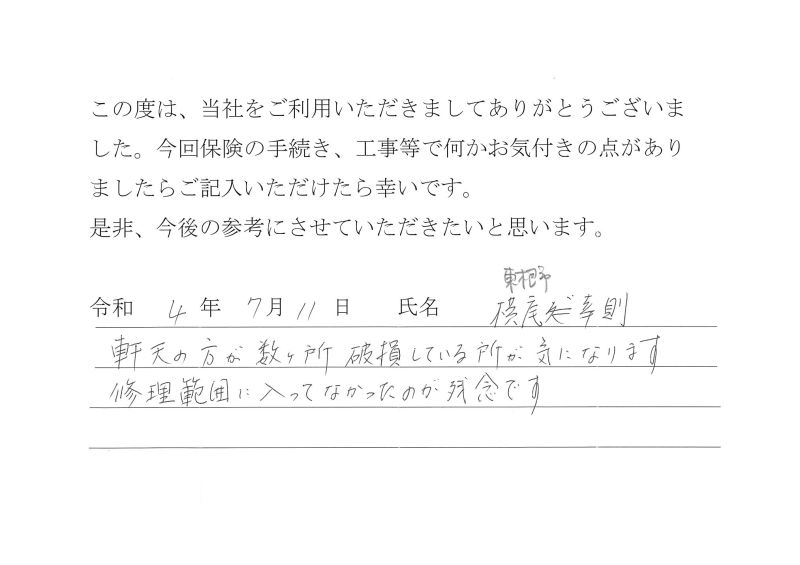 この度は、当社をご利用いただきましてありがとうございま
した。今回保険の手続き、工事等で何かお気付きの点があり
ましたらご記入いただけたら幸いです。
是非、今後の参考にさせていただきたいと思います。
令和 4 年 7月 11 日 氏名 横尾 幸則
軒天の方が数ヶ所 破損している所が気になります
修理範囲に入ってなかったのが残念です